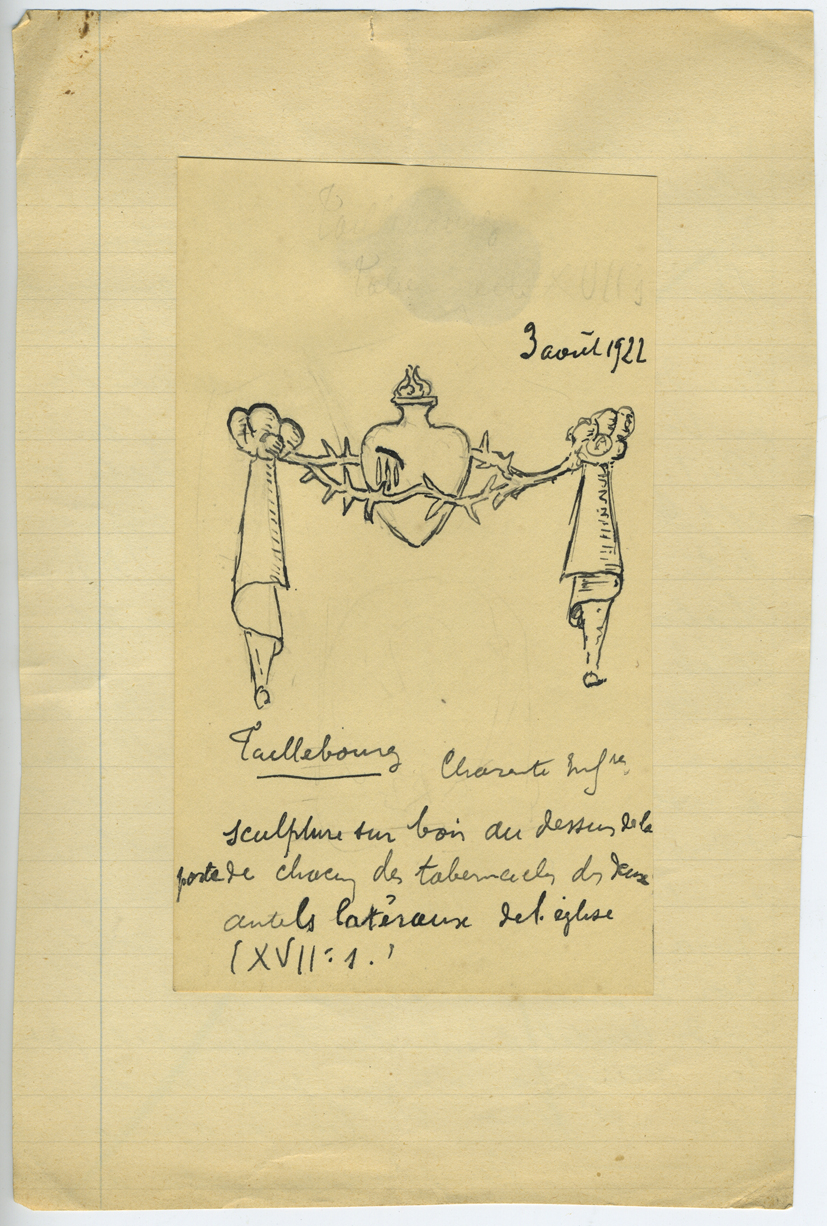 XVII s
3 août 1922
Taillebourg Charente Infre
sculpture sur bois au dessus de la
porte de chacun des tabernacles des deux
autels latéraux de l'église
(XVIIe s.)